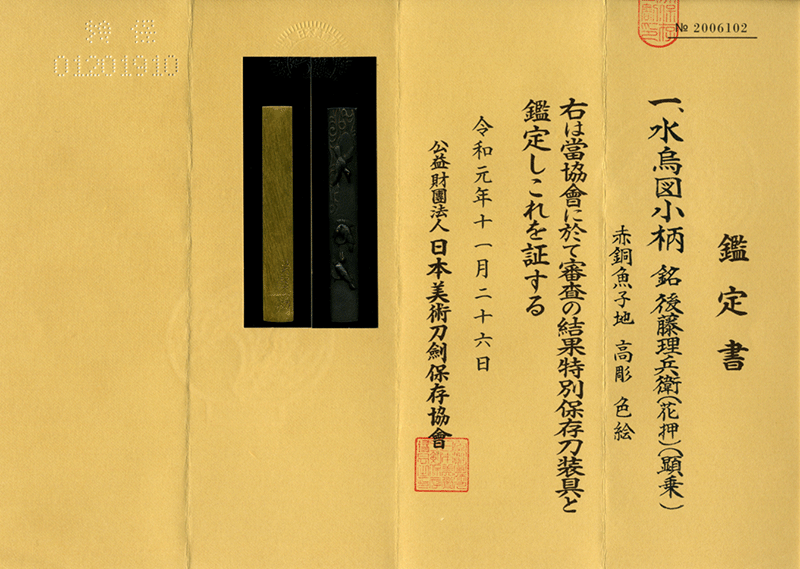 № 2006102
鑑定書
一、水鳥図小柄 銘 後藤理兵衛(花押)(顕乗)
赤銅魚子地 高彫 色絵
右は當協會に於て審査の結果特別保存刀装具と
鑑定しこれを証する
令和元年十一月二十六日
公益財團法人 日本美術刀劍保存協會
特保
01201910